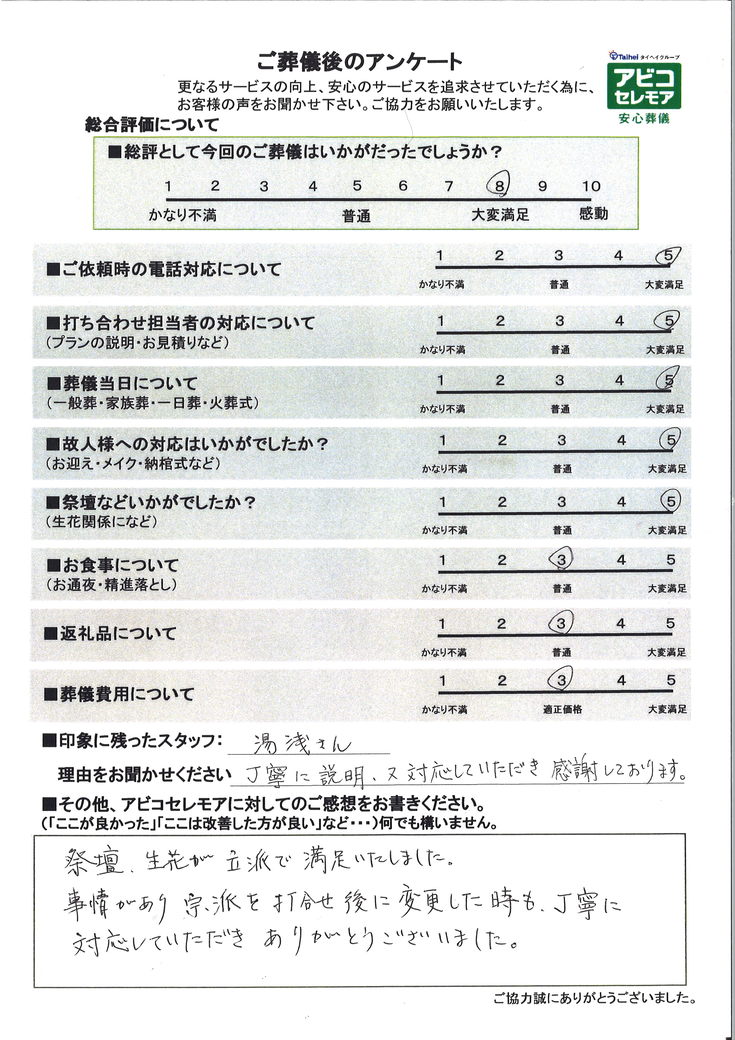 ご葬儀後のアンケート
Taihei タイヘイグループ
アビコ
セレモア
安心葬儀
更なるサービスの向上、安心のサービスを追求させていただく為に、
お客様の声をお聞かせ下さい。ご協力をお願いいたします。
総合評価について
■総評として今回のご葬儀はいかがだったでしょうか？
1 2 3 4 5 6 7 8 9 10
かなり不満 普通 大変満足 感動
■ご依頼時の電話対応について
1 2 3 4 5
かなり不満 普通 大変満足
■打ち合わせ担当者の対応について
(プランの説明・お見積りなど)
1 2 3 4 5
かなり不満 普通 大変満足
■葬儀当日について
(一般葬・家族葬・一日葬・火葬式)
1 2 3 4 5
かなり不満 普通 大変満足
■故人様への対応はいかがでしたか？
(お迎え・メイク・納棺式など)
1 2 3 4 5
かなり不満 普通 大変満足
■祭壇などいかがでしたか？
(生花関係になど)
1 2 3 4 5
かなり不満 普通 大変満足
■お食事について
(お通夜・精進落とし)
1 2 3 4 5
かなり不満 普通 大変満足
■返礼品について
1 2 3 4 5
かなり不満 普通 大変満足
■葬儀費用について
1 2 3 4 5
かなり不満 適正価格 大変満足
■印象に残ったスタッフ： 湯浅さん
理由をお聞かせください 丁寧に説明、又対応していただき感謝しております。
■その他、アビコセレモアに対してのご感想をお書きください。
(「ここが良かった」「ここは改善した方が良い」など・・・)何でも構いません。
祭壇、生花が立派で満足いたしました。
事情があり宗派を打合せ後に変更した時も、丁寧に
対応していただきありがとうございました。
ご協力誠にありがとうございました。